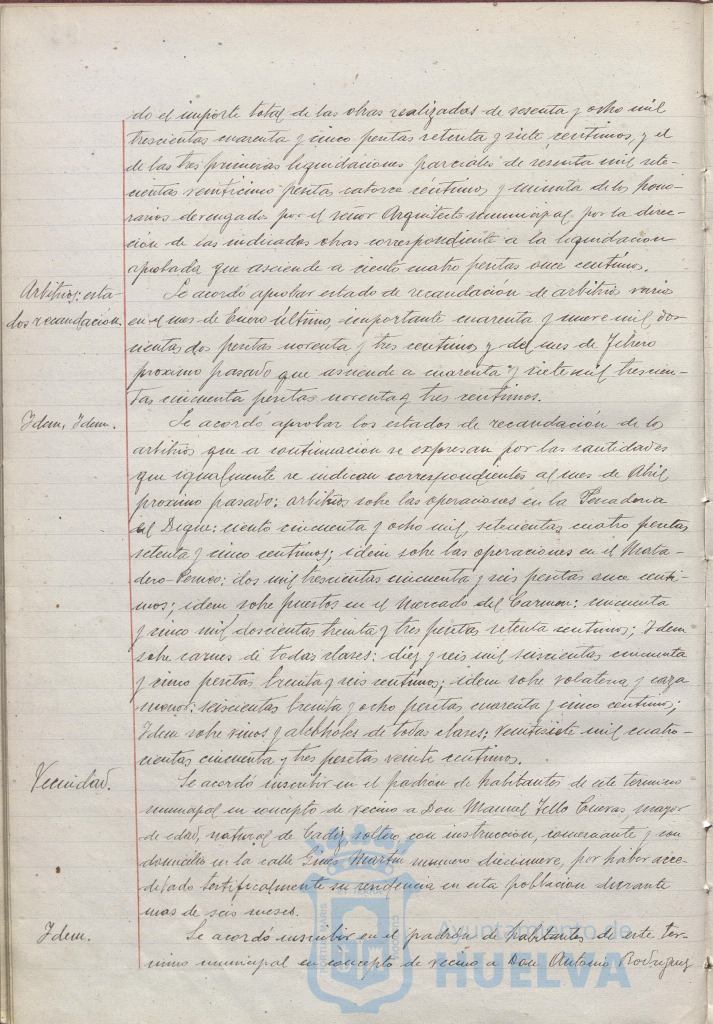 do el importe total de las obras realizadas de sesenta y ocho mil
trescientas cuarenta y cinco pesetas setenta y siete centimos, y el
de las tres primeras liquidaciones parciales de sesenta mil sete-
cientas veinticinco pesetas catorce centimos y minuta de los hono-
rarios devengados por el señor Arquitecto municipal por la direc-
cion de las indicadas obras correspondiente a la liquidacion
aprobada que asciende a ciento cuatro pesetas once centimos.
Arbitrios: esta-
dos recaudacion.
Se acordó aprobar estado de recaudación de arbitrios varios
en el mes de Enero último, importante cuarenta y nueve mil dos
cientas dos pesetas noventa y tres centimos y del mes de Febrero
proximo pasado que asciende a cuarenta y siete mil trescien-
tas cincuenta pesetas noventa y tres centimos.
Idem, Idem.
Se acordó aprobar los estados de recaudación de los
arbitrios que a continuacion se expresan por las cantidades
que igualmente se indican correspondientes al mes de Abril
proximo pasado: arbitrios sobre las operaciones en la Pescaderia
del Dique: ciento cincuenta y ocho mil, setecientas cuatro pesetas
setenta y cinco centimos; idem sobre las operaciones en el Mata-
dero: dos mil trescientas cincuenta y seis pesetas once centi-
mos; idem sobre puestos en el Mercado del Carmen: cincuenta
y cinco mil doscientas treinta y tres pesetas setenta centimos; Idem
sobre carnes de todas clases: diez y seis mil seiscientas cincuenta
y cinco pesetas treinta y seis centimos; idem sobre volateria y caza
menor: seiscientas treinta y ocho pesetas cuarenta y cinco centimos;
Idem sobre vinos y alcoholes de todas clases: veintisiete mil cuatro-
cientas cincuenta y tres pesetas veinte centimos.
Vecindad.
Se acordó inscribir en el padrón de habitantes de este termino
municipal en concepto de vecino a Don Manuel Tello Cuevas, mayor
de edad, natural de Cadiz, soltero, con instruccion, comerciante y con
domicilio en la calle Ginés Martín numero diecinueve, por haber acre-
ditado testificalmente su residencia en esta poblacion durante
mas de seis meses.
Idem.
Se acordó inscribir en el padrón de habitantes de este ter-
mino municipal en concepto de vecino a Don Antonio Rodriguez
Ayuntamiento de
HUELVA